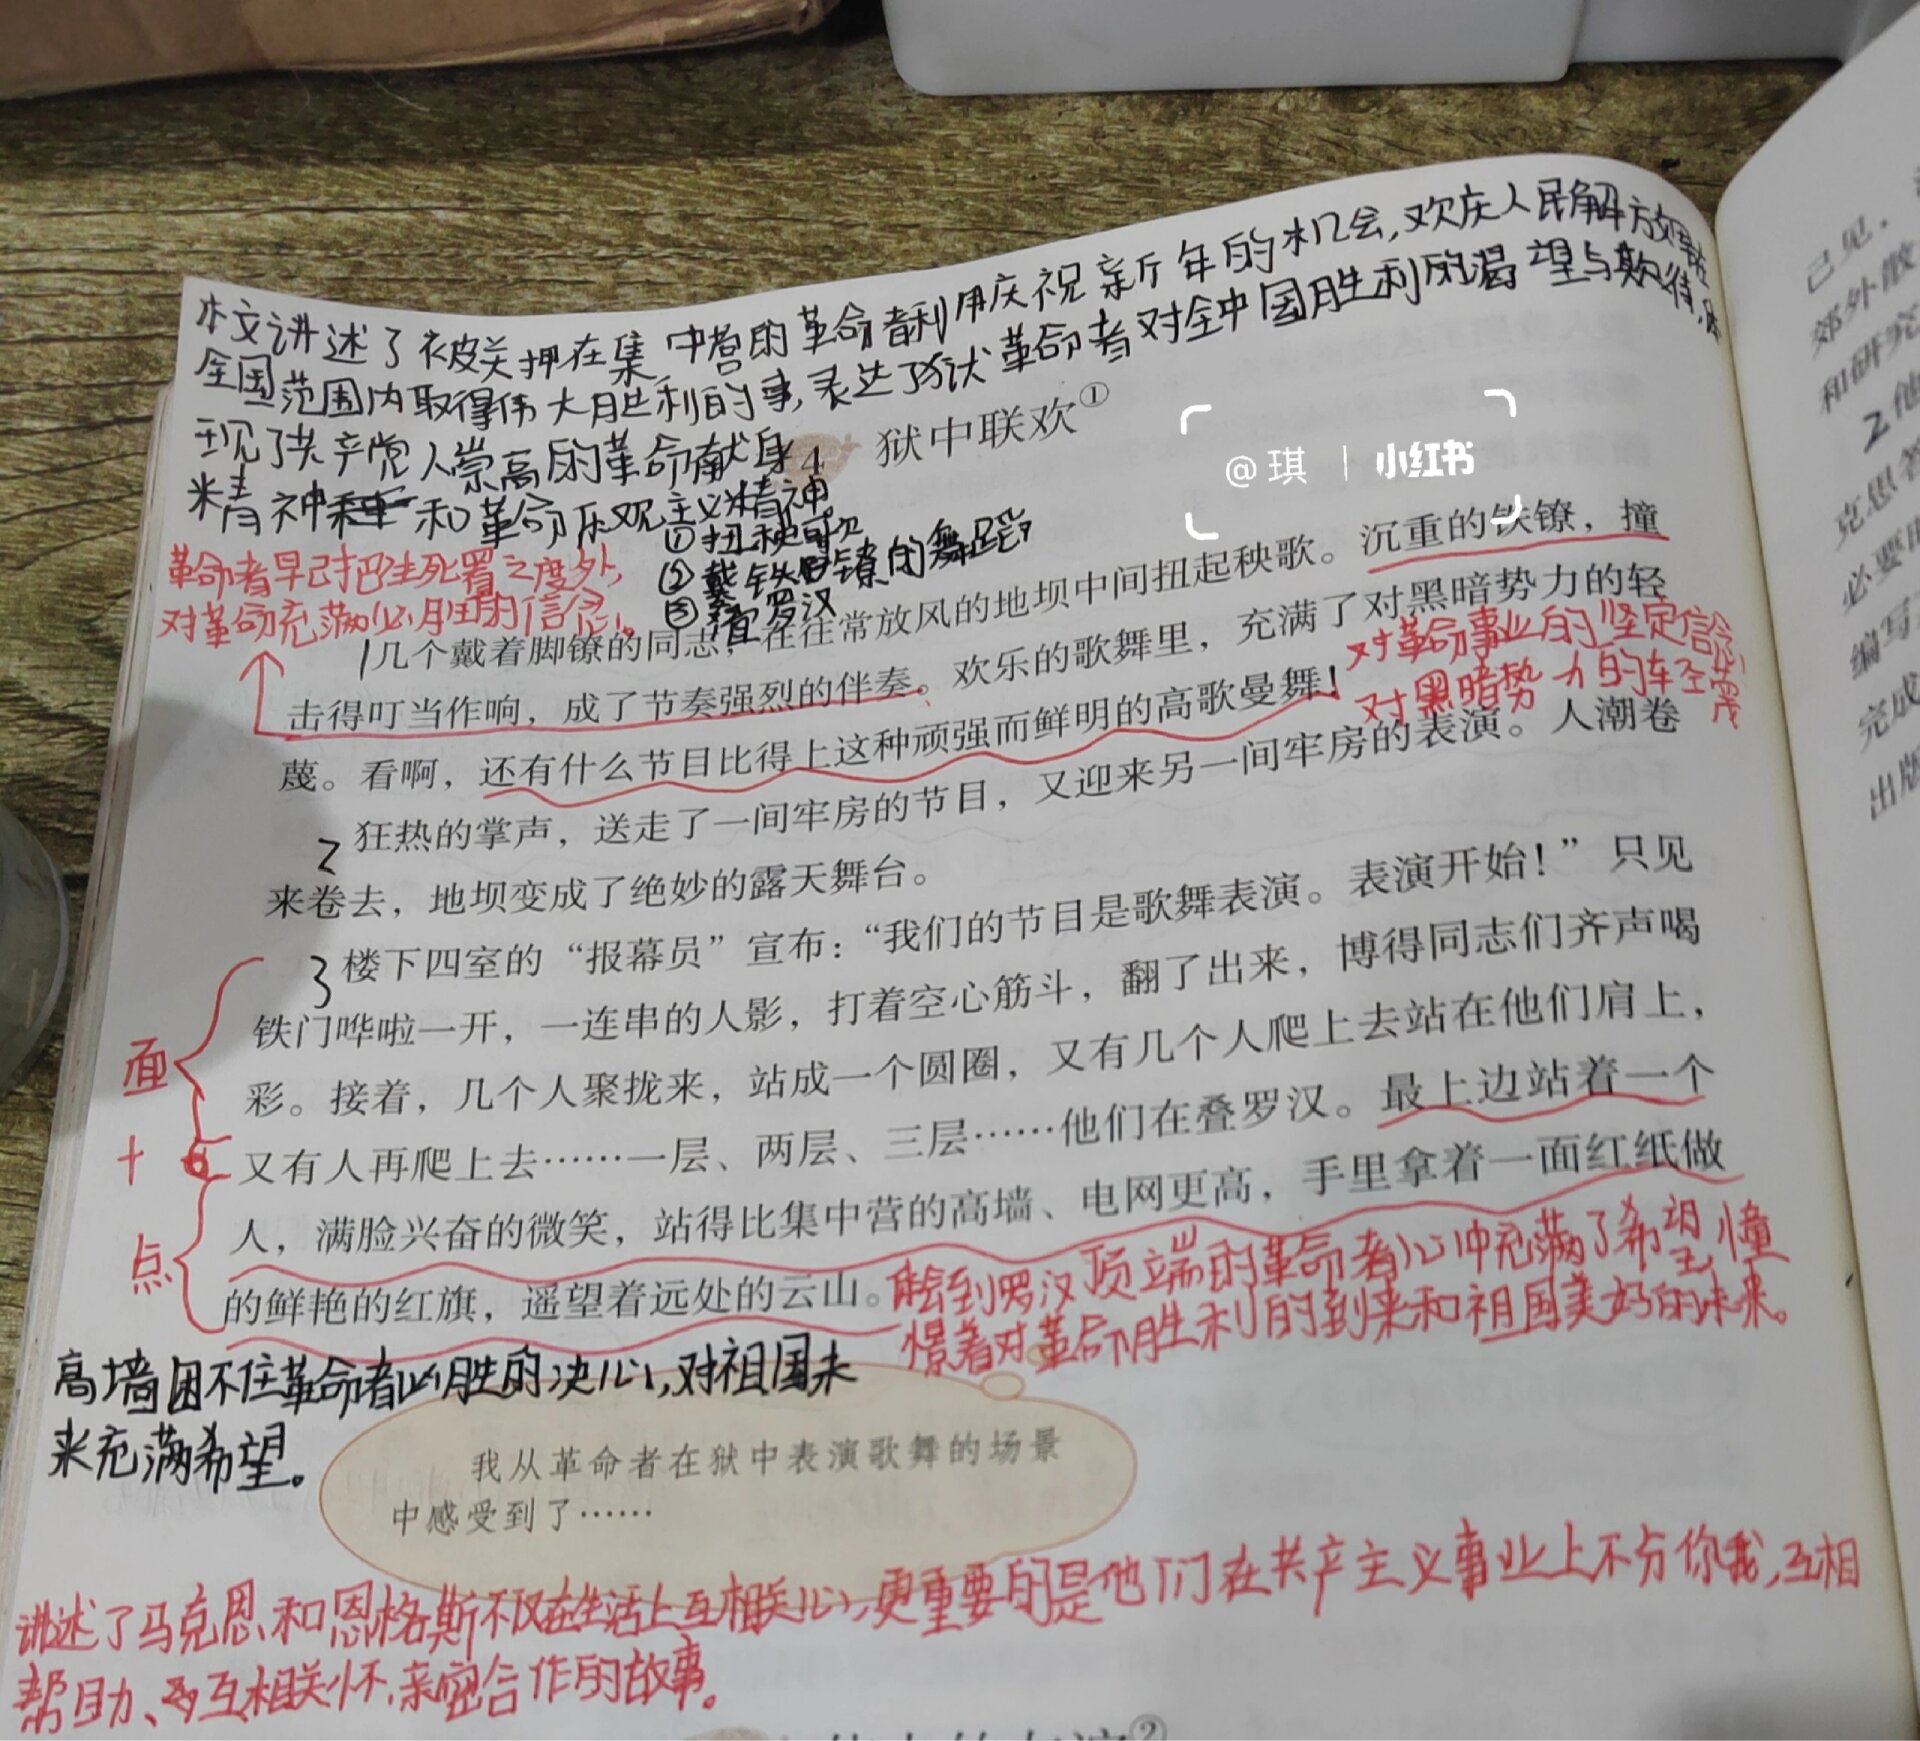 本文讲述了被关押在集中营的革命者利用庆祝新年的机会,欢庆人民解放军在
全国范围内取得伟大胜利的事,表达了狱中革命者对全中国胜利的渴望与期待,体
现了共产党人崇高的革命献身
精神和革命乐观主义精神
4 狱中联欢①
@琪 | 小红书
①扭秧歌
②戴铁脚镣的舞蹈
③叠罗汉
革命者早已把生死置之度外,
对革命充满必胜的信念。
1几个戴着脚镣的同志,在往常放风的地坝中间扭起秧歌。沉重的铁镣,撞
击得叮当作响,成了节奏强烈的伴奏。欢乐的歌舞里,充满了对黑暗势力的轻
蔑。看啊,还有什么节目比得上这种顽强而鲜明的高歌曼舞!
对革命事业的坚定信念
对黑暗势力的轻蔑
2狂热的掌声,送走了一间牢房的节目,又迎来另一间牢房的表演。人潮卷
来卷去,地坝变成了绝妙的露天舞台。
3楼下四室的“报幕员”宣布:“我们的节目是歌舞表演。表演开始!”只见
铁门哗啦一开,一连串的人影,打着空心筋斗,翻了出来,博得同志们齐声喝
彩。接着,几个人聚拢来,站成一个圆圈,又有几个人爬上去站在他们肩上,
又有人再爬上去……一层、两层、三层……他们在叠罗汉。最上边站着一个
人,满脸兴奋的微笑,站得比集中营的高墙、电网更高,手里拿着一面红纸做
的鲜艳的红旗,遥望着远处的云山。
面
+
点
体会到罗汉顶端的革命者心中充满了希望,憧
憬着对革命胜利的到来和祖国美好的未来。
高墙困不住革命者必胜的决心,对祖国未
来充满希望。
我从革命者在狱中表演歌舞的场景
中感受到了……
讲述了马克思和恩格斯不仅在生活上互相关心,更重要的是他们在共产主义事业上不分你我,互相
帮助、互相关怀,亲密合作的故事。
②
己见,
郊外散
和研究
2他
克思答
必要时
编写
完成
出版